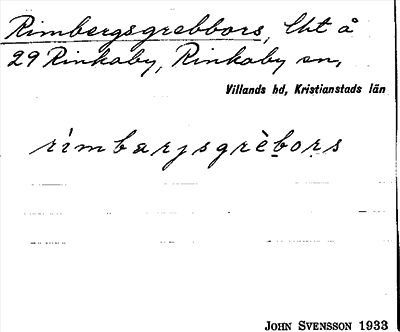 Rimbergsgrebbors, Lht å
29 Rinkaby, Rinkaby sn,
Villands hd, Kristianstads län
rìmbærjsgrèbors
JOHN SVENSSON 1933